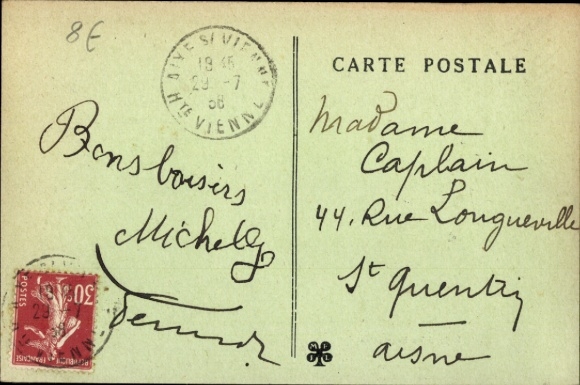 8€
AIXE S/ VIENNE
18 45
29 -7
38
HTE VIENNE
CARTE POSTALE
Bons baisers
Michel
Madame
Caplain
44, Rue Longueville
St Quentin
aisne
30c
POSTES